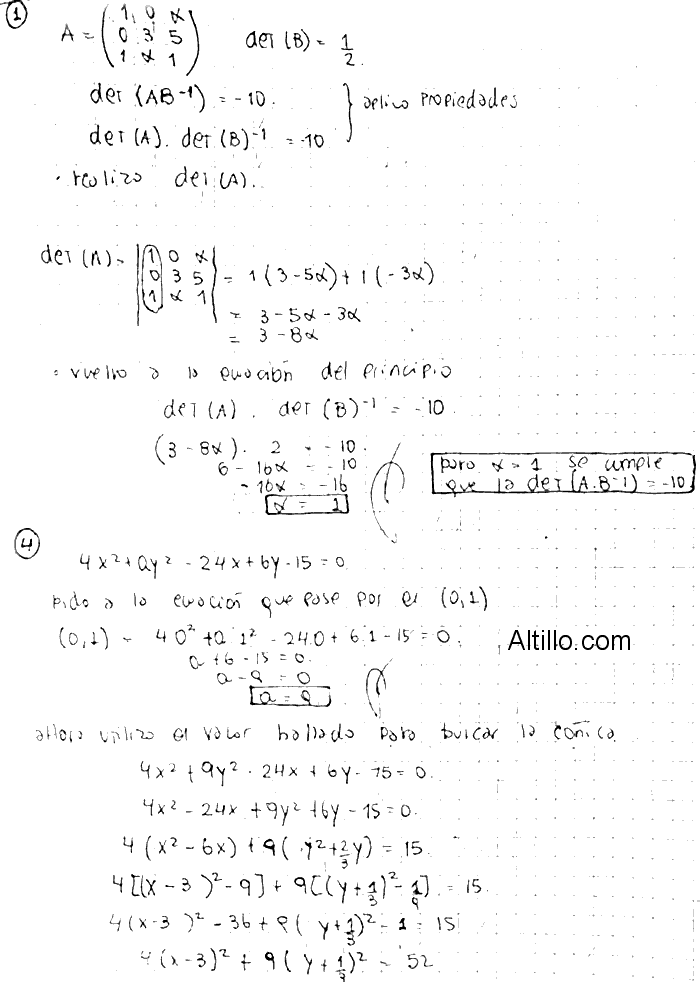 ① A = (1 0 α / 0 3 5 / 1 α 1) det (B) = 1/2.
det (AB⁻¹) = -10. } aplico propiedades
det (A) . det (B)⁻¹ = -10
· realizo det (A).
det (A) = |1 0 α / 0 3 5 / 1 α 1| = 1 (3 - 5α) + 1 (-3α)
= 3 - 5α - 3α
= 3 - 8α
· vuelvo a la ecuación del principio
det (A) . det (B)⁻¹ = -10.
(3 - 8α) . 2 = -10.
6 - 16α = -10
-16α = -16
α = 1
para α = 1 se cumple
que la det (A.B⁻¹) = -10
④
4x² + ay² - 24x + 6y - 15 = 0
pido a la ecuación que pase por el (0,1)
(0,1) - 4 0² + a 1² - 24.0 + 6.1 - 15 = 0.
Altillo.com
a + 6 - 15 = 0.
a - 9 = 0
a = 9
ahora utilizo el valor hallado para buscar la cónica
4x² + 9y² - 24x + 6y - 15 = 0.
4x² - 24x + 9y² + 6y - 15 = 0.
4 (x² - 6x) + 9 (y² + 2/3 y) = 15.
4 [(x - 3)² - 9] + 9 [(y + 1/3)² - 1/9] = 15.
4 (x - 3)² - 36 + 9 (y + 1/3)² - 1 = 15
4 (x - 3)² + 9 (y + 1/3)² = 52